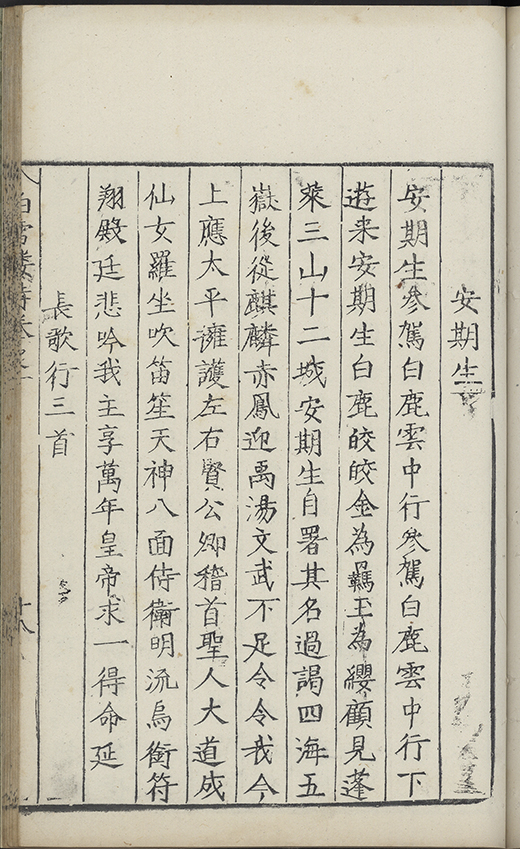 安期生
安期生參駕白鹿雲中行參駕白鹿雲中行下
遊来安期生白鹿皎皎金為羈玉為纓顧見蓬
萊三山十二城安期生自署其名過謁四海五
嶽後從麒麟赤鳳迎禹湯文武不足令令我今
上應太平擁護左右賢公卿稽首聖人大道成
仙女羅坐吹笛笙天神八面侍衛明流烏銜符
翔殿廷悲吟我主享萬年皇帝求一得命延
長歌行三首